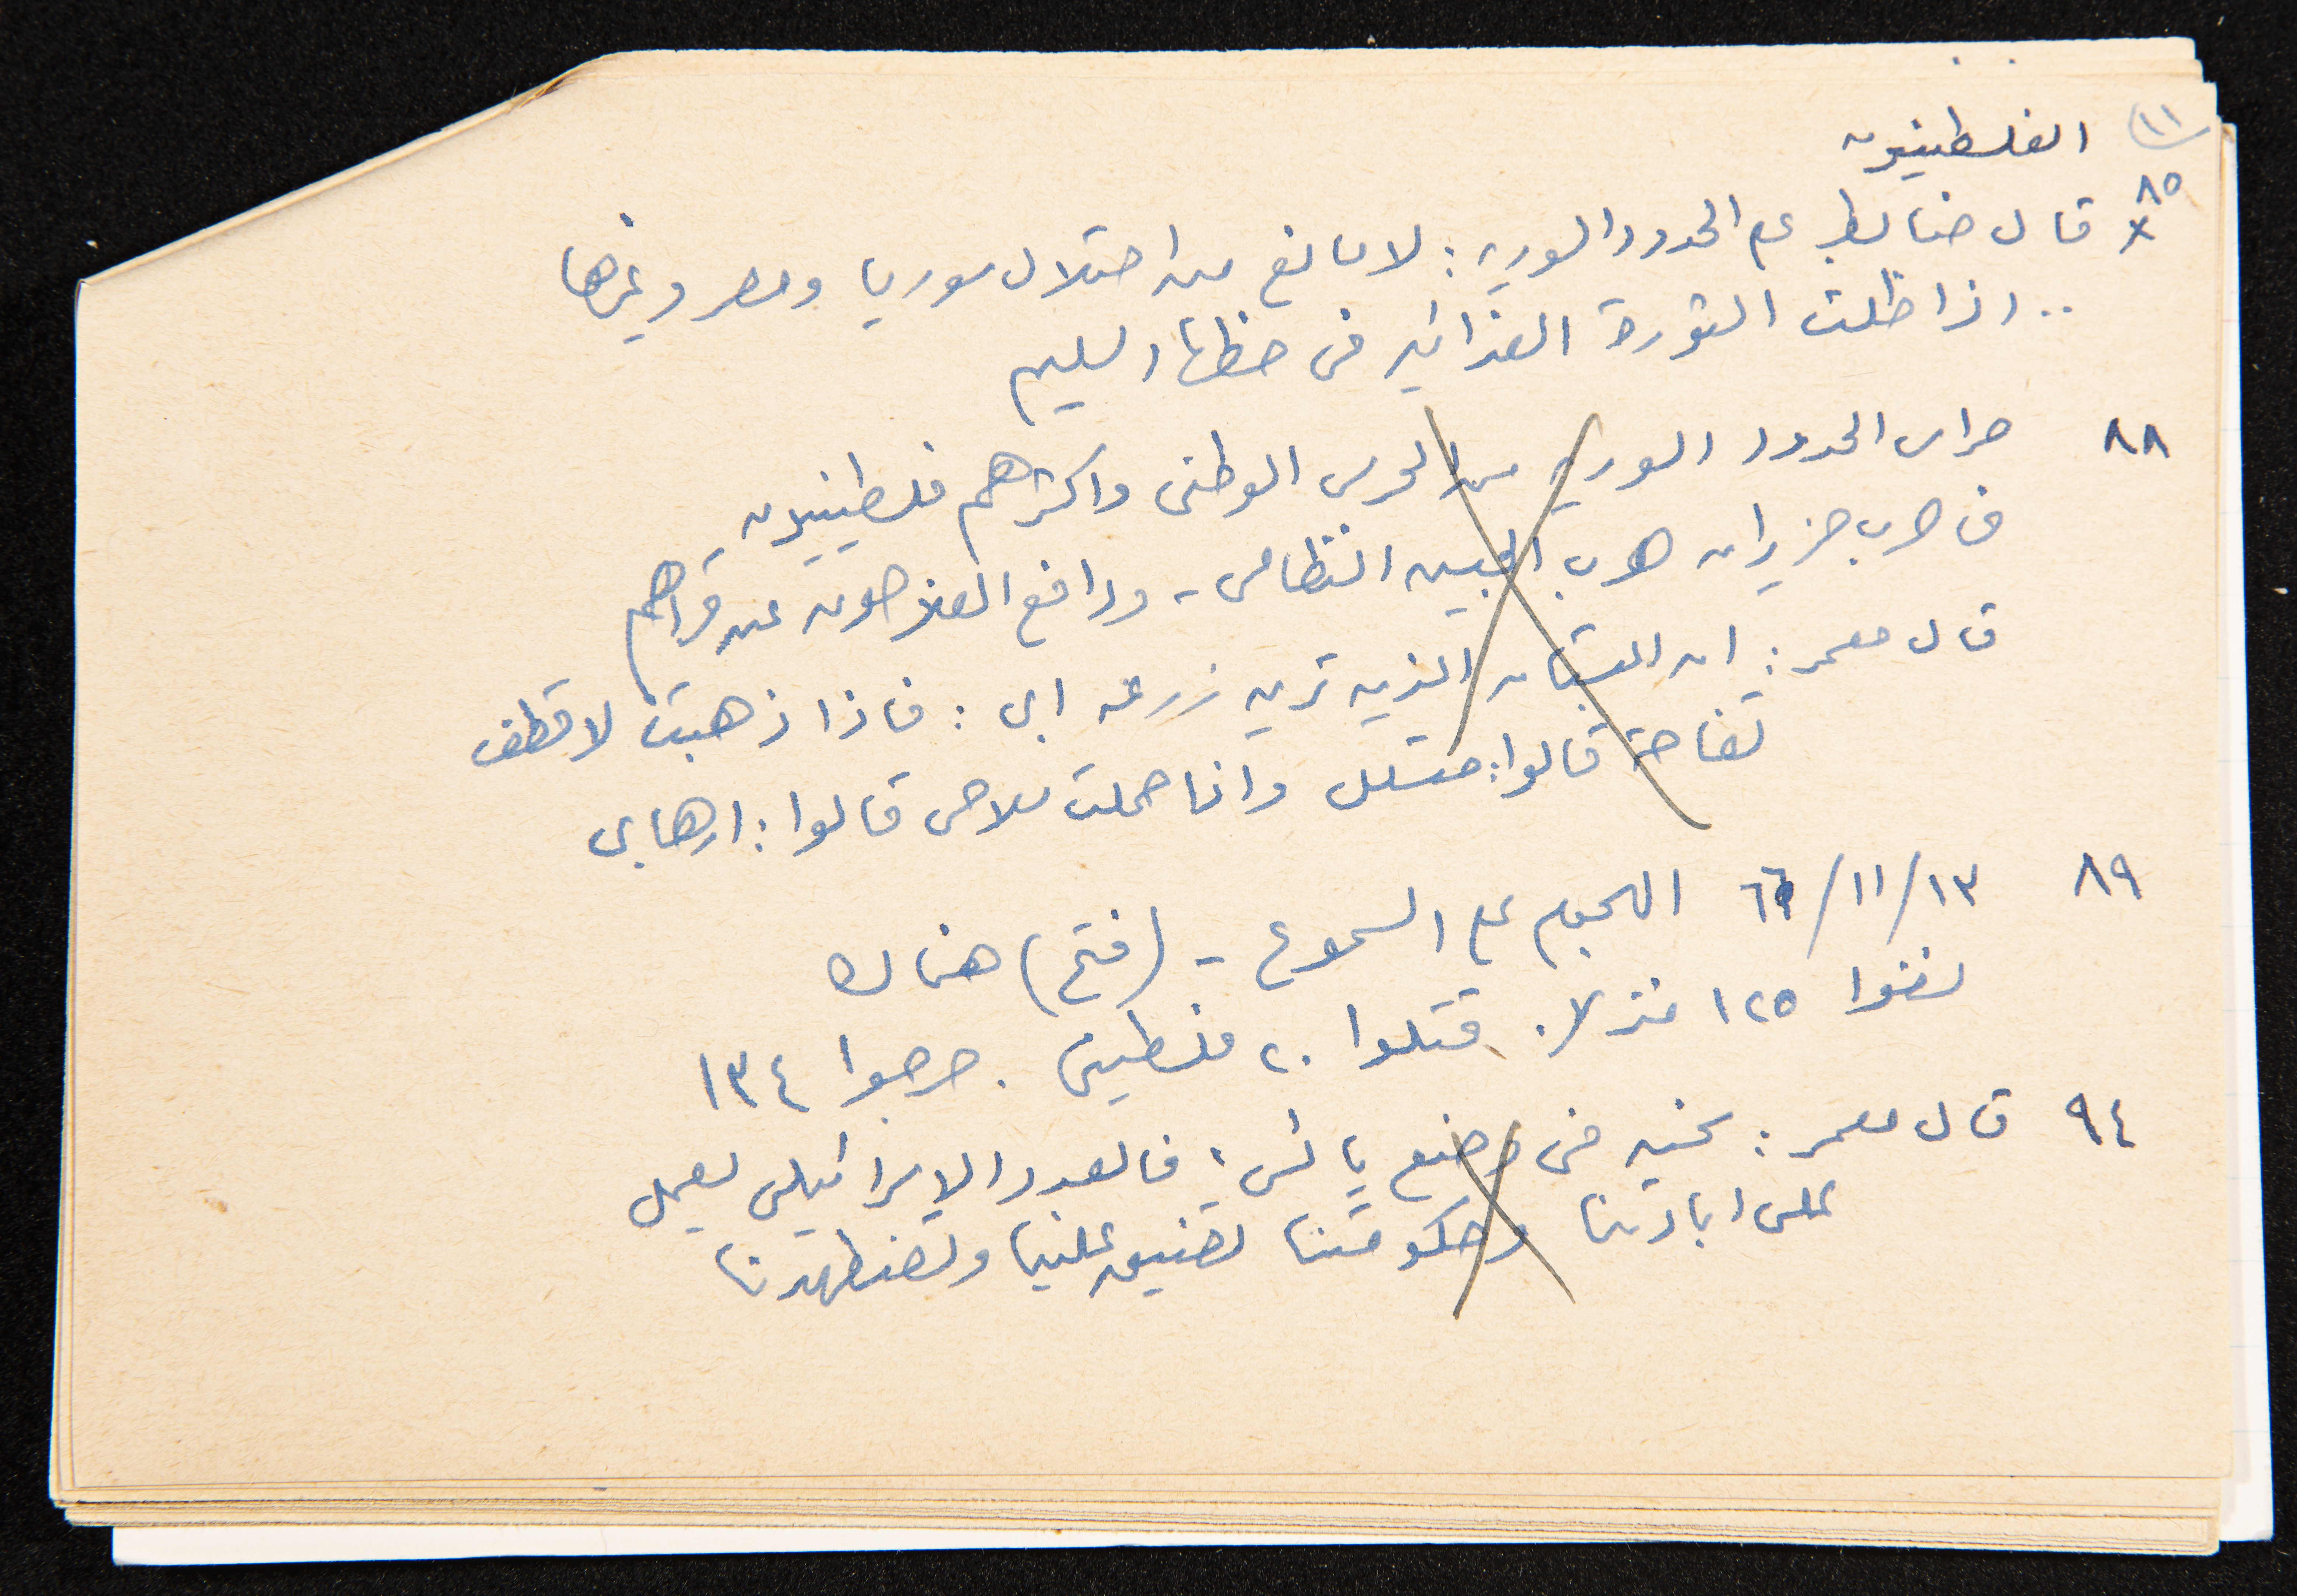 (١١ الفلسطينيون
٨٥
x قال ضابط على الحدود السورية : لا مانع من احتلال سوريا ومصر وغيرها
.. اذا ظلت الثورة الفدائية في خطها السليم
٨٨ حراس الحدود السورية من الحرس الوطني واكثرهم فلسطينيون
في حرب حزيران هرب الجيش النظامي - ودافع الفلاحون عن قراهم
قال معمر : ان البستان الذي ترينه زرعه ابي : فاذا ذهبت لاقطف
تفاحة قالوا : متسلل واذا حملت سلاحي قالوا : ارهابي
٨٩ ١٣/١١/٦٦ الهجوم على السموع - (فتح) هناك
نسفوا ١٢٥ منزلا . قتلوا ٢٠ فلسطيني . جرحوا ١٣٤
٩٤ قال معمر : نحن في وضع يائس ، فالعدو الاسرائيلي يعمل
على ابادتنا وحكومتنا تضيق علينا وتضطهدنا